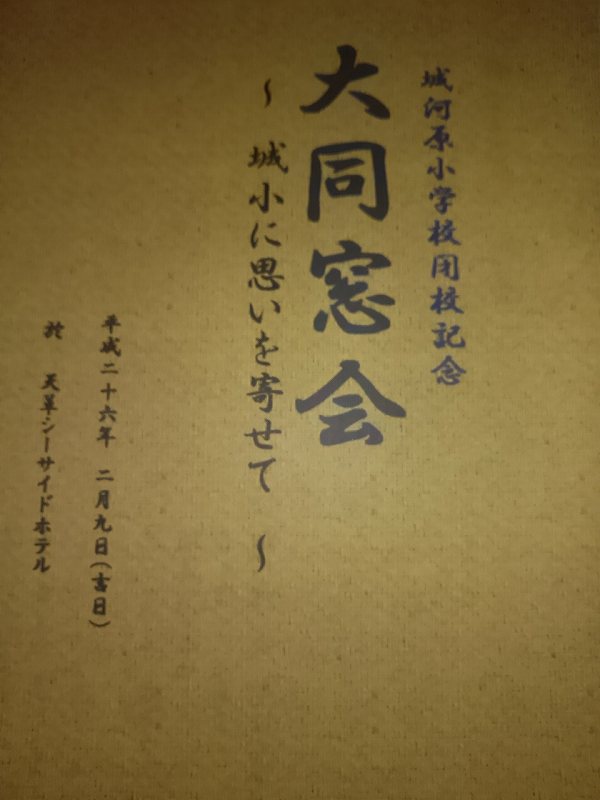 城河原小学校閉校記念
大同窓会
～ 城小に思いを寄せて ～
平成二十六年 二月九日(吉日)
於 天草シーサイドホテル